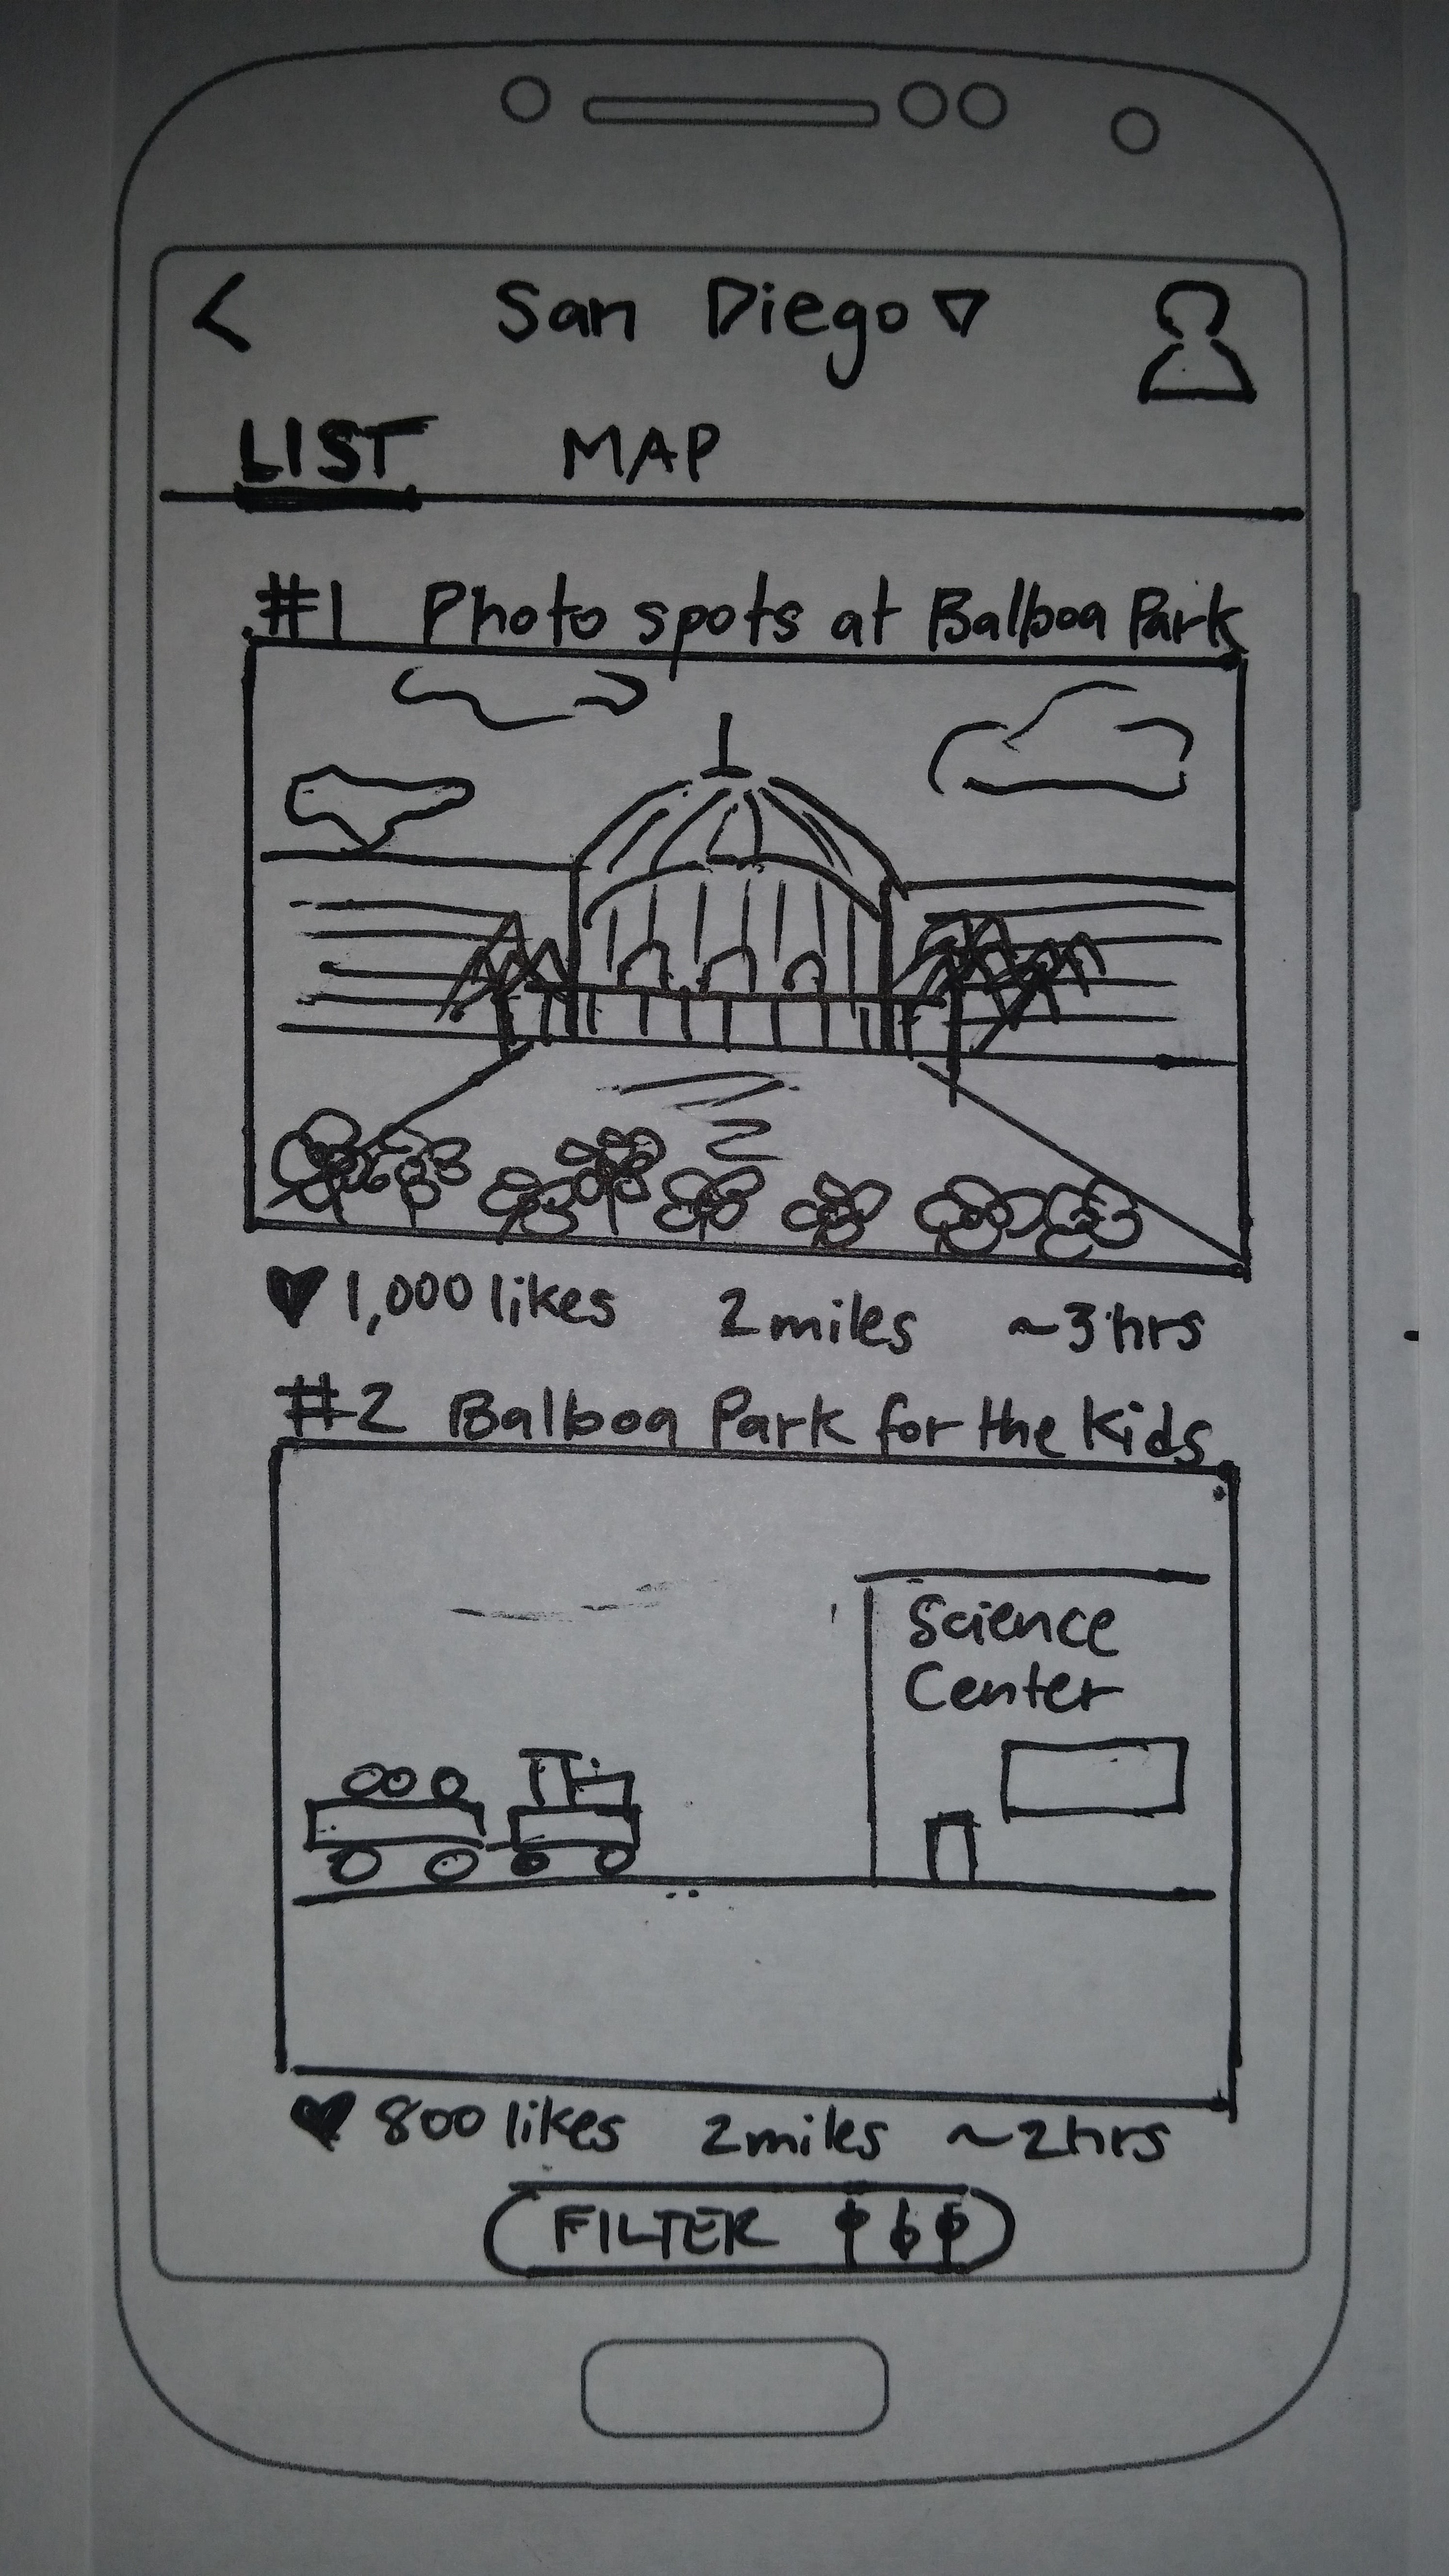 San Diego
LIST MAP
#1 Photo spots at Balboa Park
1,000 likes 2 miles ~3 hrs
#2 Balboa Park for the Kids
Science
Center
800 likes 2 miles ~2 hrs
FILTER